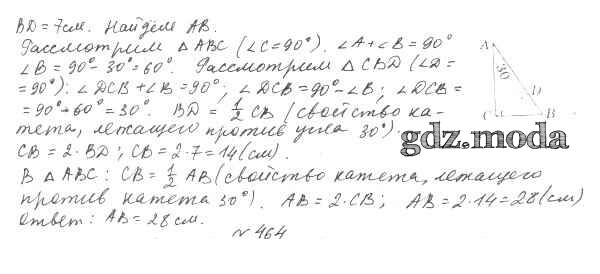 BD = 7см. Найдем AB.
Рассмотрим △ ABC (∠C=90°). ∠A+∠B=90°
∠B = 90°- 30°=60°. Рассмотрим △ CBD (∠D=
=90°): ∠DCB+∠B=90°; ∠DCB=90°-∠B; ∠DCB=
= 90°-60°=30°. BD = 1/2 CB (свойство ка-
тета, лежащего против угла 30°).
CB = 2·BD; CB = 2·7=14(см).
В △ ABC: CB = 1/2 AB (свойство катета, лежащего
против катета 30°). AB = 2·CB; AB = 2·14=28(см)
ответ: AB=28см.
№ 464
A
30
D
C
B
gdz.moda